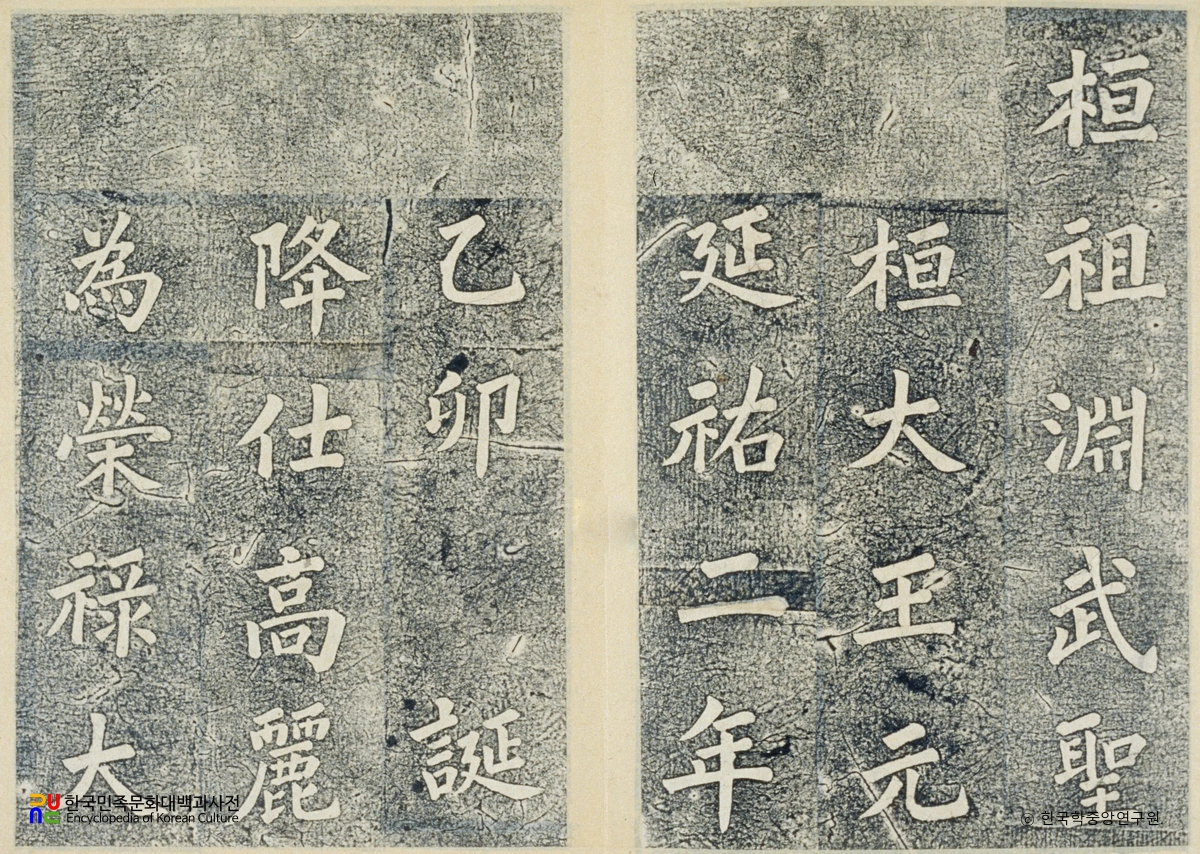 桓祖淵武聖
桓大王元
延祐二年
乙卯 誕
降仕高麗
為榮祿大
한국민족문화대백과사전
Encyclopedia of Korean Culture
© 한국학중앙연구원